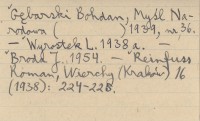 "Gębarski Bohdan, Myśl Na-
rodowa (          ) 1939, na 36.
— "Wyrostek L. 1938 a. —
"Broda J. 1954. — "Reinfuss
Roman, Wierchy (Kraków) 16
(1938): 224-228.